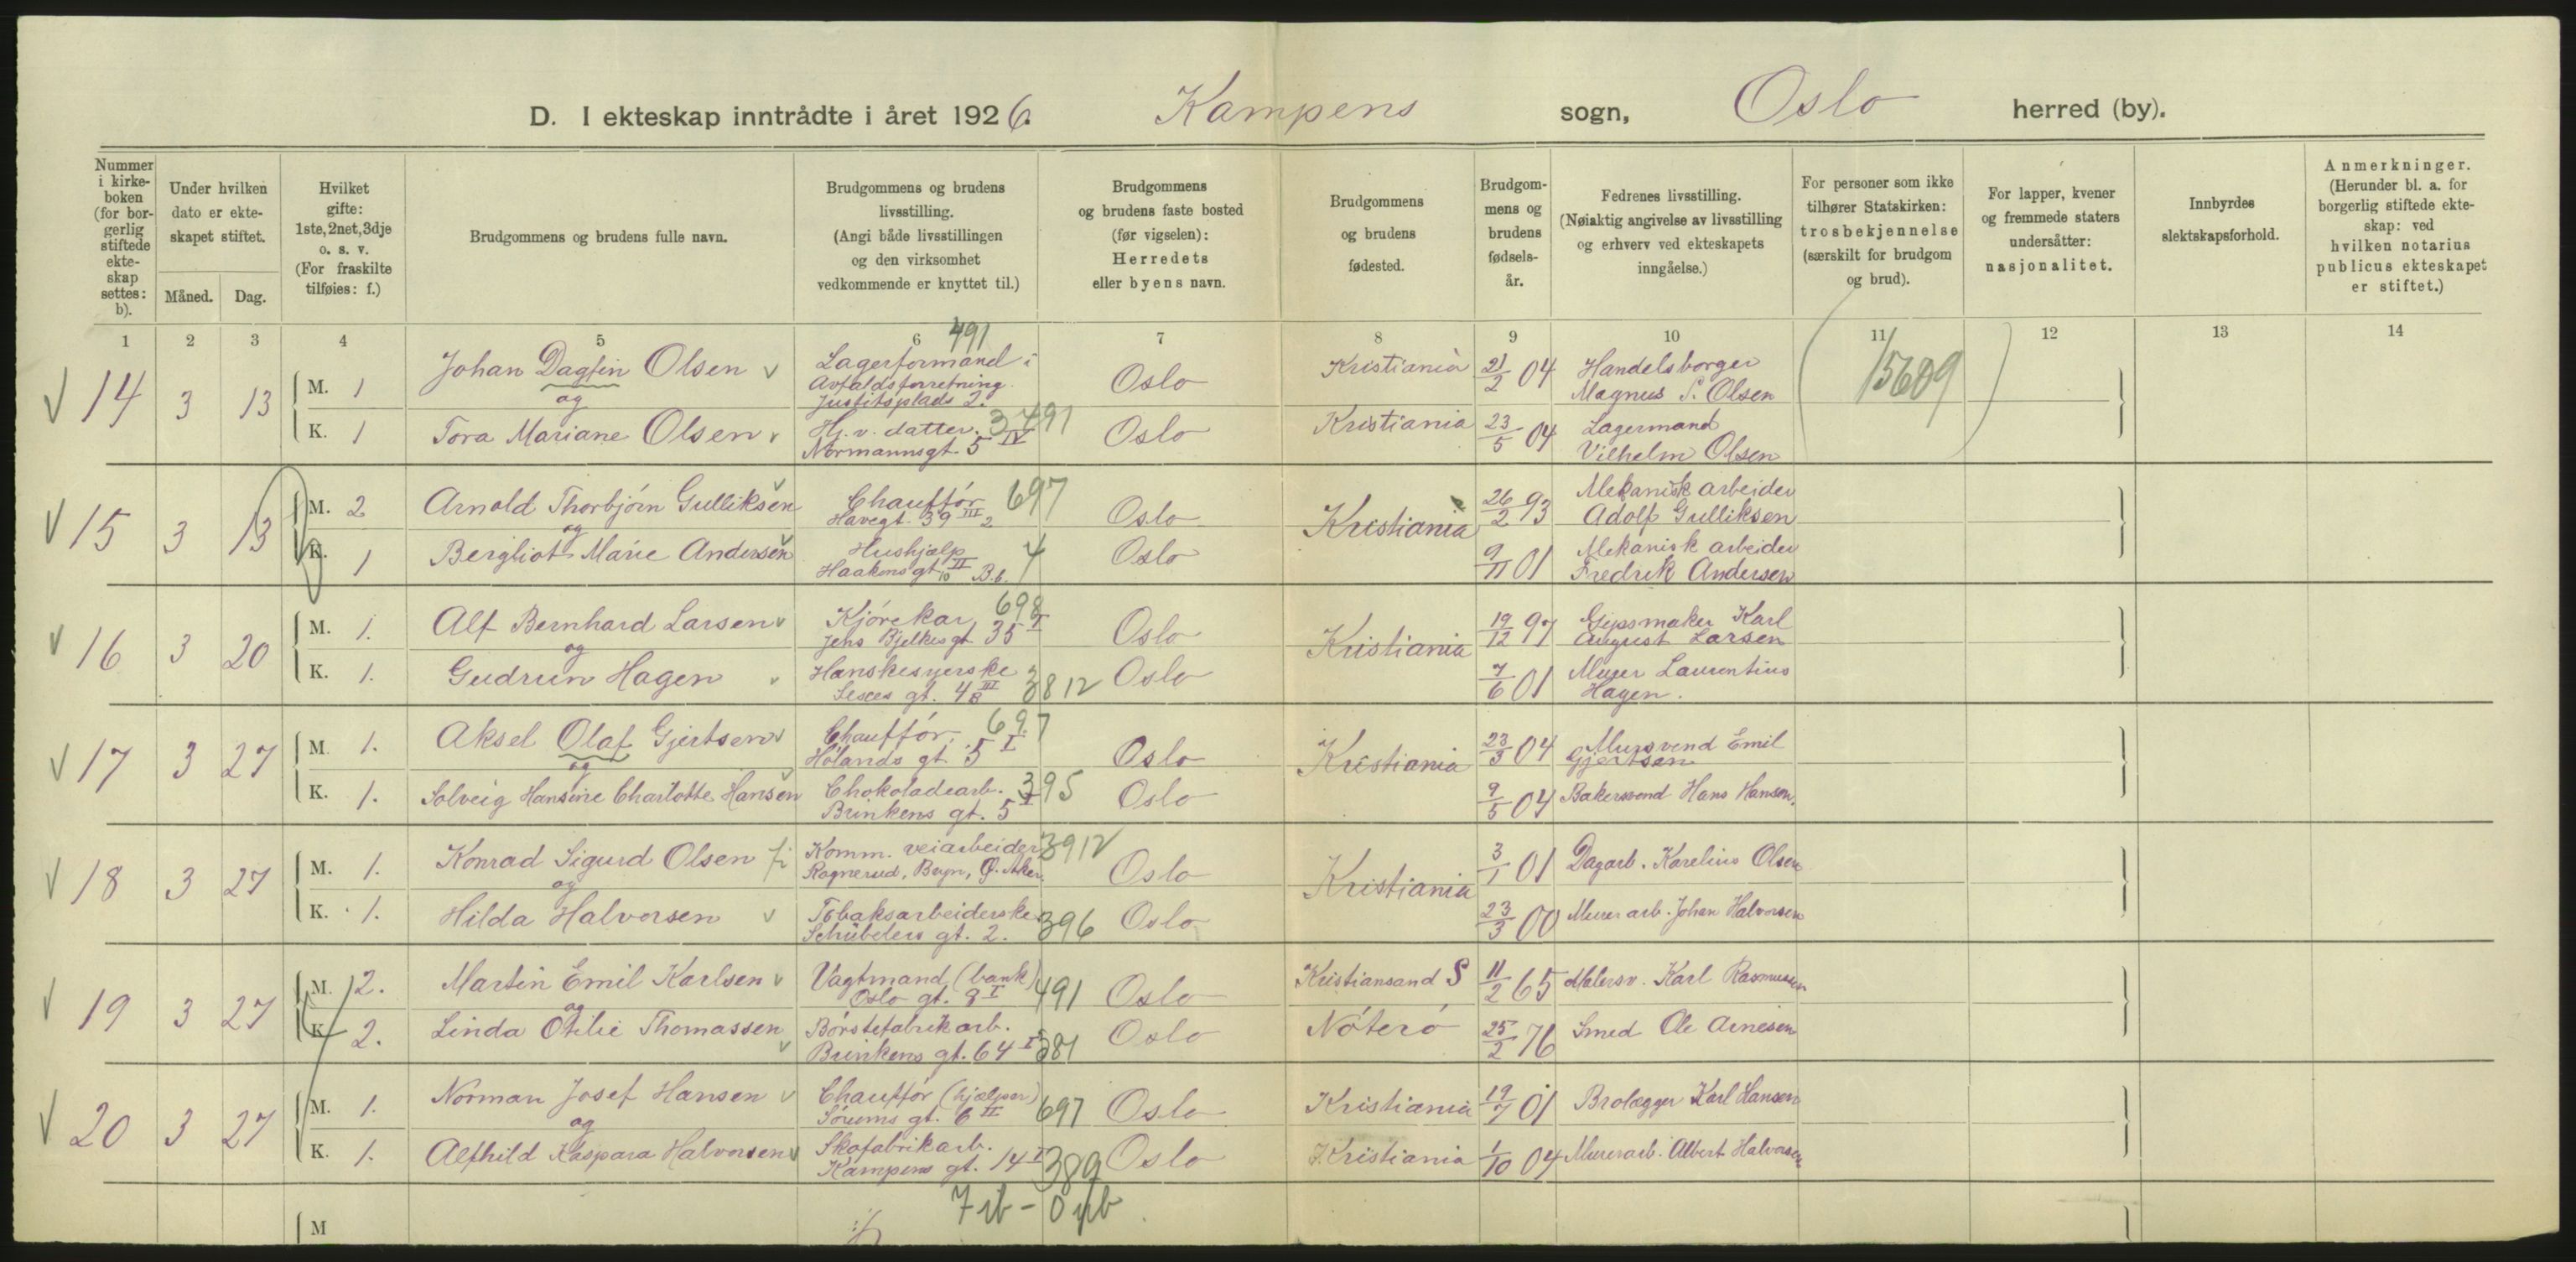 D. I ekteskap inntrådte i året 1926. Kampens sogn, Oslo herred (by).
Nummer i kirke-boken (for bor-gerlig stiftede ekte-skap settes: b).
Under hvilken dato er ekte-skapet stiftet.
Måned. Dag.
Hvilket gifte: 1ste, 2net, 3dje o. s. v. (For fraskilte tilføies: f.)
Brudgommens og brudens fulle navn.
Brudgommens og brudens livsstilling. (Angi både livsstillingen og den virksomhet vedkommende er knyttet til.)
Brudgommens og brudens faste bosted (før vigselen): Herredets eller byens navn.
Brudgommens og brudens fødested.
Brudgom-mens og brudens fødsels-år.
Fedrenes livsstilling. (Nøiaktig angivelse av livsstilling og erhverv ved ekteskapets inngåelse.)
For personer som ikke tilhører Statskirken: trosbekjennelse (særskilt for brudgom og brud).
For lapper, kvener og fremmede staters undersåtter: nasjonalitet.
Innbyrdes slektskapsforhold.
Anmerkninger. (Herunder bl. a. for borgerlig stiftede ekte-skap: ved hvilken notarius publicus ekteskapet er stiftet.)
1 2 3 4 5 6 7 8 9 10 11 12 13 14
491
14 3 13 M. 1 Johan Dagfin Olsen Lagerformand i Avfaldsforretning. Justitsplads 2. Oslo Kristiania 21/2 04 Handelsborger Magnus S. Olsen 15609
og
K. 1 Tora Mariane Olsen Hj. v. datter. Normannsgt. 5 IV 3491 Oslo Kristiania 23/5 04 Lagermand Vilhelm Olsen
15 3 13 M. 2 Arnold Thorbjörn Gulliksen Chaufför Havegt. 39 III 2 697 Oslo Kristiania 26/2 93 Mekanisk arbeider Adolf Gulliksen
og
K. 1 Bergliot Marie Andersen Hushjælp Haakons gt. 10 II B.b. 4 Oslo 9/11 01 Mekanisk arbeider Fredrik Andersen
16 3 20 M. 1. Alf Bernhard Larsen Kjörekar Jens Bjelkes gt 35 I 698 Oslo Kristiania 19/12 97 Gipsmaker Karl August Larsen
og
K. 1. Gudrun Hagen Hanskesyerske gt. 48 III 3812 Oslo 7/6 01 Murer Laurentius Hagen.
17 3 27 M. 1. Aksel Olaf Gjertsen Chaufför. Hölands gt. 5 I 697 Oslo Kristiania 23/3 04 Mursvend Emil Gjertsen
og
K. 1. Solveig Hansine Charlotte Hansen Chokoladearb. Brinkens gt. 5 I 395 Oslo 9/5 04 Bakersvend Hans Hansen.
18 3 27 M. 1. Konrad Sigurd Olsen Komm. veiarbeider Ragnerud, Bryn, Ø. Aker. 3912 Oslo Kristiania 3/1 01 Dagarb. Karelius Olsen
og
K. 1. Hilda Halvorsen Tobaksarbeiderske Schübelers gt. 2. 396 Oslo 23/3 00 Murerarb. Johan Halvorsen
19 3 27 M. 2. Martin Emil Karlsen Vagtmand (bank) Oslo gt. 8 I 491 Oslo Kristiansand S 11/2 65 Malersv. Karl Rasmussen
og
K. 2. Linda Otilie Thomassen Börstefabrikarb. Brinkens gt. 64 I 381 Oslo Nöterö 25/2 76 Smed Ole Arnesen
20 3 27 M. 1. Norman Josef Hansen Chaufför (hjælper) Sörums gt. 6 II 697 Oslo Kristiania 19/7 01 Brolægger Karl Hansen
og
K. 1. Alfhild Kaspara Halvorsen Skofabrikarb. Kampens gt. 14 I 389 Oslo Kristiania 1/10 04 Murerarb. Albert Halvorsen
M